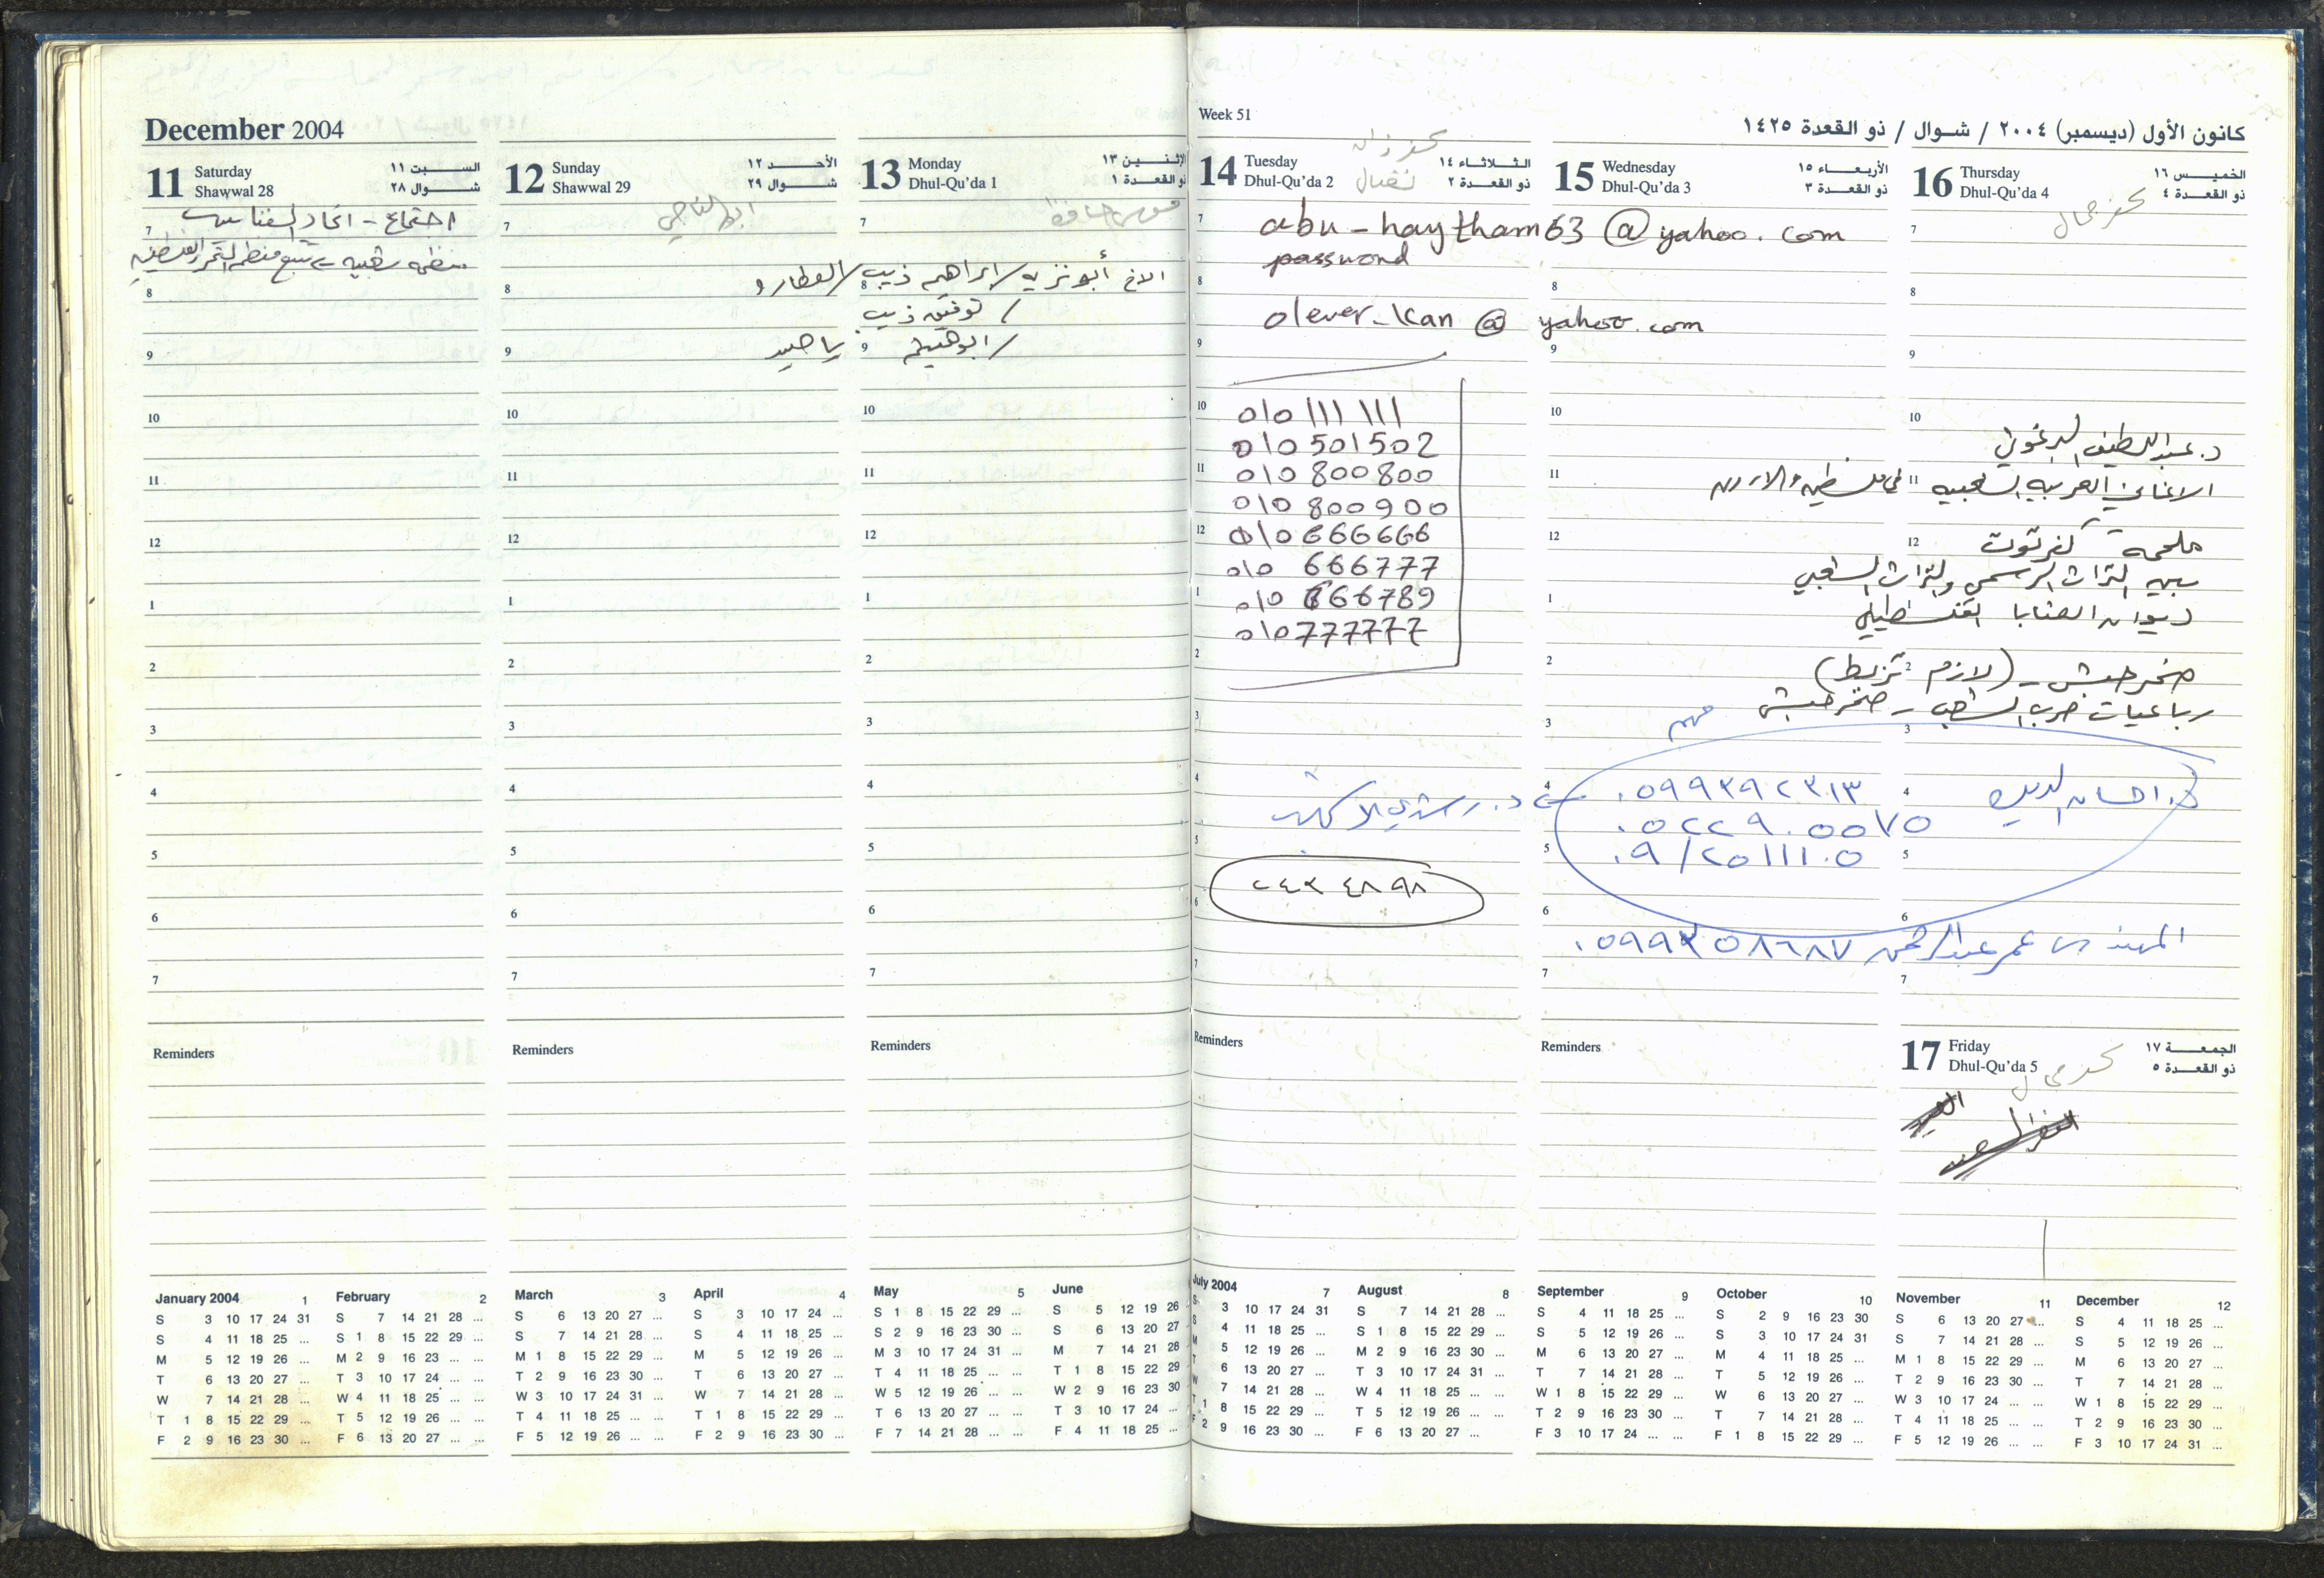 December 2004
11 Saturday السبت ١١
Shawwal 28 شوال ٢٨
اجتماع - اتحاد الفنانين
منظمة شعبية تتبع منظمة التحرير الفلسطينية
7
8
9
10
11
12
1
2
3
4
5
6
7
Reminders
12 Sunday الأحد ١٢
Shawwal 29 شوال ٢٩
7
8
9
10
11
12
1
2
3
4
5
6
7
Reminders
13 Monday الإثنين ١٣
Dhul-Qu'da 1 ذو القعدة ١
7
الاخ أبو نزيه / ابراهيم ذيب / العطارة
8
/ توفيق ذيب
/ ابو هيثم
9
10
11
12
1
2
3
4
5
6
7
Reminders
Week 51
كانون الأول (ديسمبر) ٢٠٠٤ / شوال / ذو القعدة ١٤٢٥
14 Tuesday الثلاثاء ١٤
Dhul-Qu'da 2 ذو القعدة ٢
abu-haytham63@yahoo.com
password
olever-kan@yahoo.com
7
8
9
10
010 111 111
010 501502
11
010 800800
010 800900
12
010 666666
010 666777
1
010 666789
010 777777
2
3
4
5
٢٤٣ ٤٨ ٩٨
6
7
Reminders
15 Wednesday الأربعاء ١٥
Dhul-Qu'da 3 ذو القعدة ٣
8
9
10
11
12
1
2
3
مهم
4
٠٥٩٩٣٩٢٣١٣
٠٥٢٢٩٠٥٥٧٥
٠٩/٢٥١١١٠٥
5
6
7
Reminders
16 Thursday الخميس ١٦
Dhul-Qu'da 4 ذو القعدة ٤
7
8
9
10
د. عبد اللطيف البرغوثي
11
الاغاني العربية الشعبية في فلسطين والاردن
12
ملحمة كفر توت
بين التراث الرسمي والتراث الشعبي
ديوان العتابا الفلسطيني
2
صخر حبش - (لازم تزبط)
رباعيات حرب الشعب - صخر حبش
3
4
د. احسان الديك
5
6
المهندس عمر عبد الرحمن ٠٥٩٩٣٥٨٦٨٧
7
17 Friday الجمعة ١٧
Dhul-Qu'da 5 ذو القعدة ٥
January 2004 1
S 3 10 17 24 31
S 4 11 18 25 ...
M 5 12 19 26 ...
T 6 13 20 27 ...
W 7 14 21 28 ...
T 1 8 15 22 29 ...
F 2 9 16 23 30 ...
February 2
S 7 14 21 28 ...
S 1 8 15 22 29 ...
M 2 9 16 23 ... ...
T 3 10 17 24 ... ...
W 4 11 18 25 ... ...
T 5 12 19 26 ... ...
F 6 13 20 27 ... ...
March 3
S 6 13 20 27 ...
S 7 14 21 28 ...
M 1 8 15 22 29 ...
T 2 9 16 23 30 ...
W 3 10 17 24 31 ...
T 4 11 18 25 ... ...
F 5 12 19 26 ... ...
April 4
S 3 10 17 24 ...
S 4 11 18 25 ...
M 5 12 19 26 ...
T 6 13 20 27 ...
W 7 14 21 28 ...
T 1 8 15 22 29 ...
F 2 9 16 23 30 ...
May 5
S 1 8 15 22 29 ...
S 2 9 16 23 30 ...
M 3 10 17 24 31 ...
T 4 11 18 25 ... ...
W 5 12 19 26 ... ...
T 6 13 20 27 ... ...
F 7 14 21 28 ... ...
June
S 5 12 19 26
S 6 13 20 27
M 7 14 21 28
T 1 8 15 22 29
W 2 9 16 23 30
T 3 10 17 24 ...
F 4 11 18 25 ...
July 2004 7
S 3 10 17 24 31
S 4 11 18 25 ...
M 5 12 19 26 ...
T 6 13 20 27 ...
W 7 14 21 28 ...
T 1 8 15 22 29 ...
F 2 9 16 23 30 ...
August 8
S 7 14 21 28 ...
S 1 8 15 22 29 ...
M 2 9 16 23 30 ...
T 3 10 17 24 31 ...
W 4 11 18 25 ... ...
T 5 12 19 26 ... ...
F 6 13 20 27 ...
September 9
S 4 11 18 25 ...
S 5 12 19 26 ...
M 6 13 20 27 ...
T 7 14 21 28 ...
W 1 8 15 22 29 ...
T 2 9 16 23 30 ...
F 3 10 17 24 ... ...
October 10
S 2 9 16 23 30
S 3 10 17 24 31
M 4 11 18 25 ...
T 5 12 19 26 ...
W 6 13 20 27 ...
T 7 14 21 28 ...
F 1 8 15 22 29 ...
November 11
S 6 13 20 27 ...
S 7 14 21 28 ...
M 1 8 15 22 29 ...
T 2 9 16 23 30 ...
W 3 10 17 24 ... ...
T 4 11 18 25 ... ...
F 5 12 19 26 ... ...
December 12
S 4 11 18 25 ...
S 5 12 19 26 ...
M 6 13 20 27 ...
T 7 14 21 28 ...
W 1 8 15 22 29 ...
T 2 9 16 23 30 ...
F 3 10 17 24 31 ...